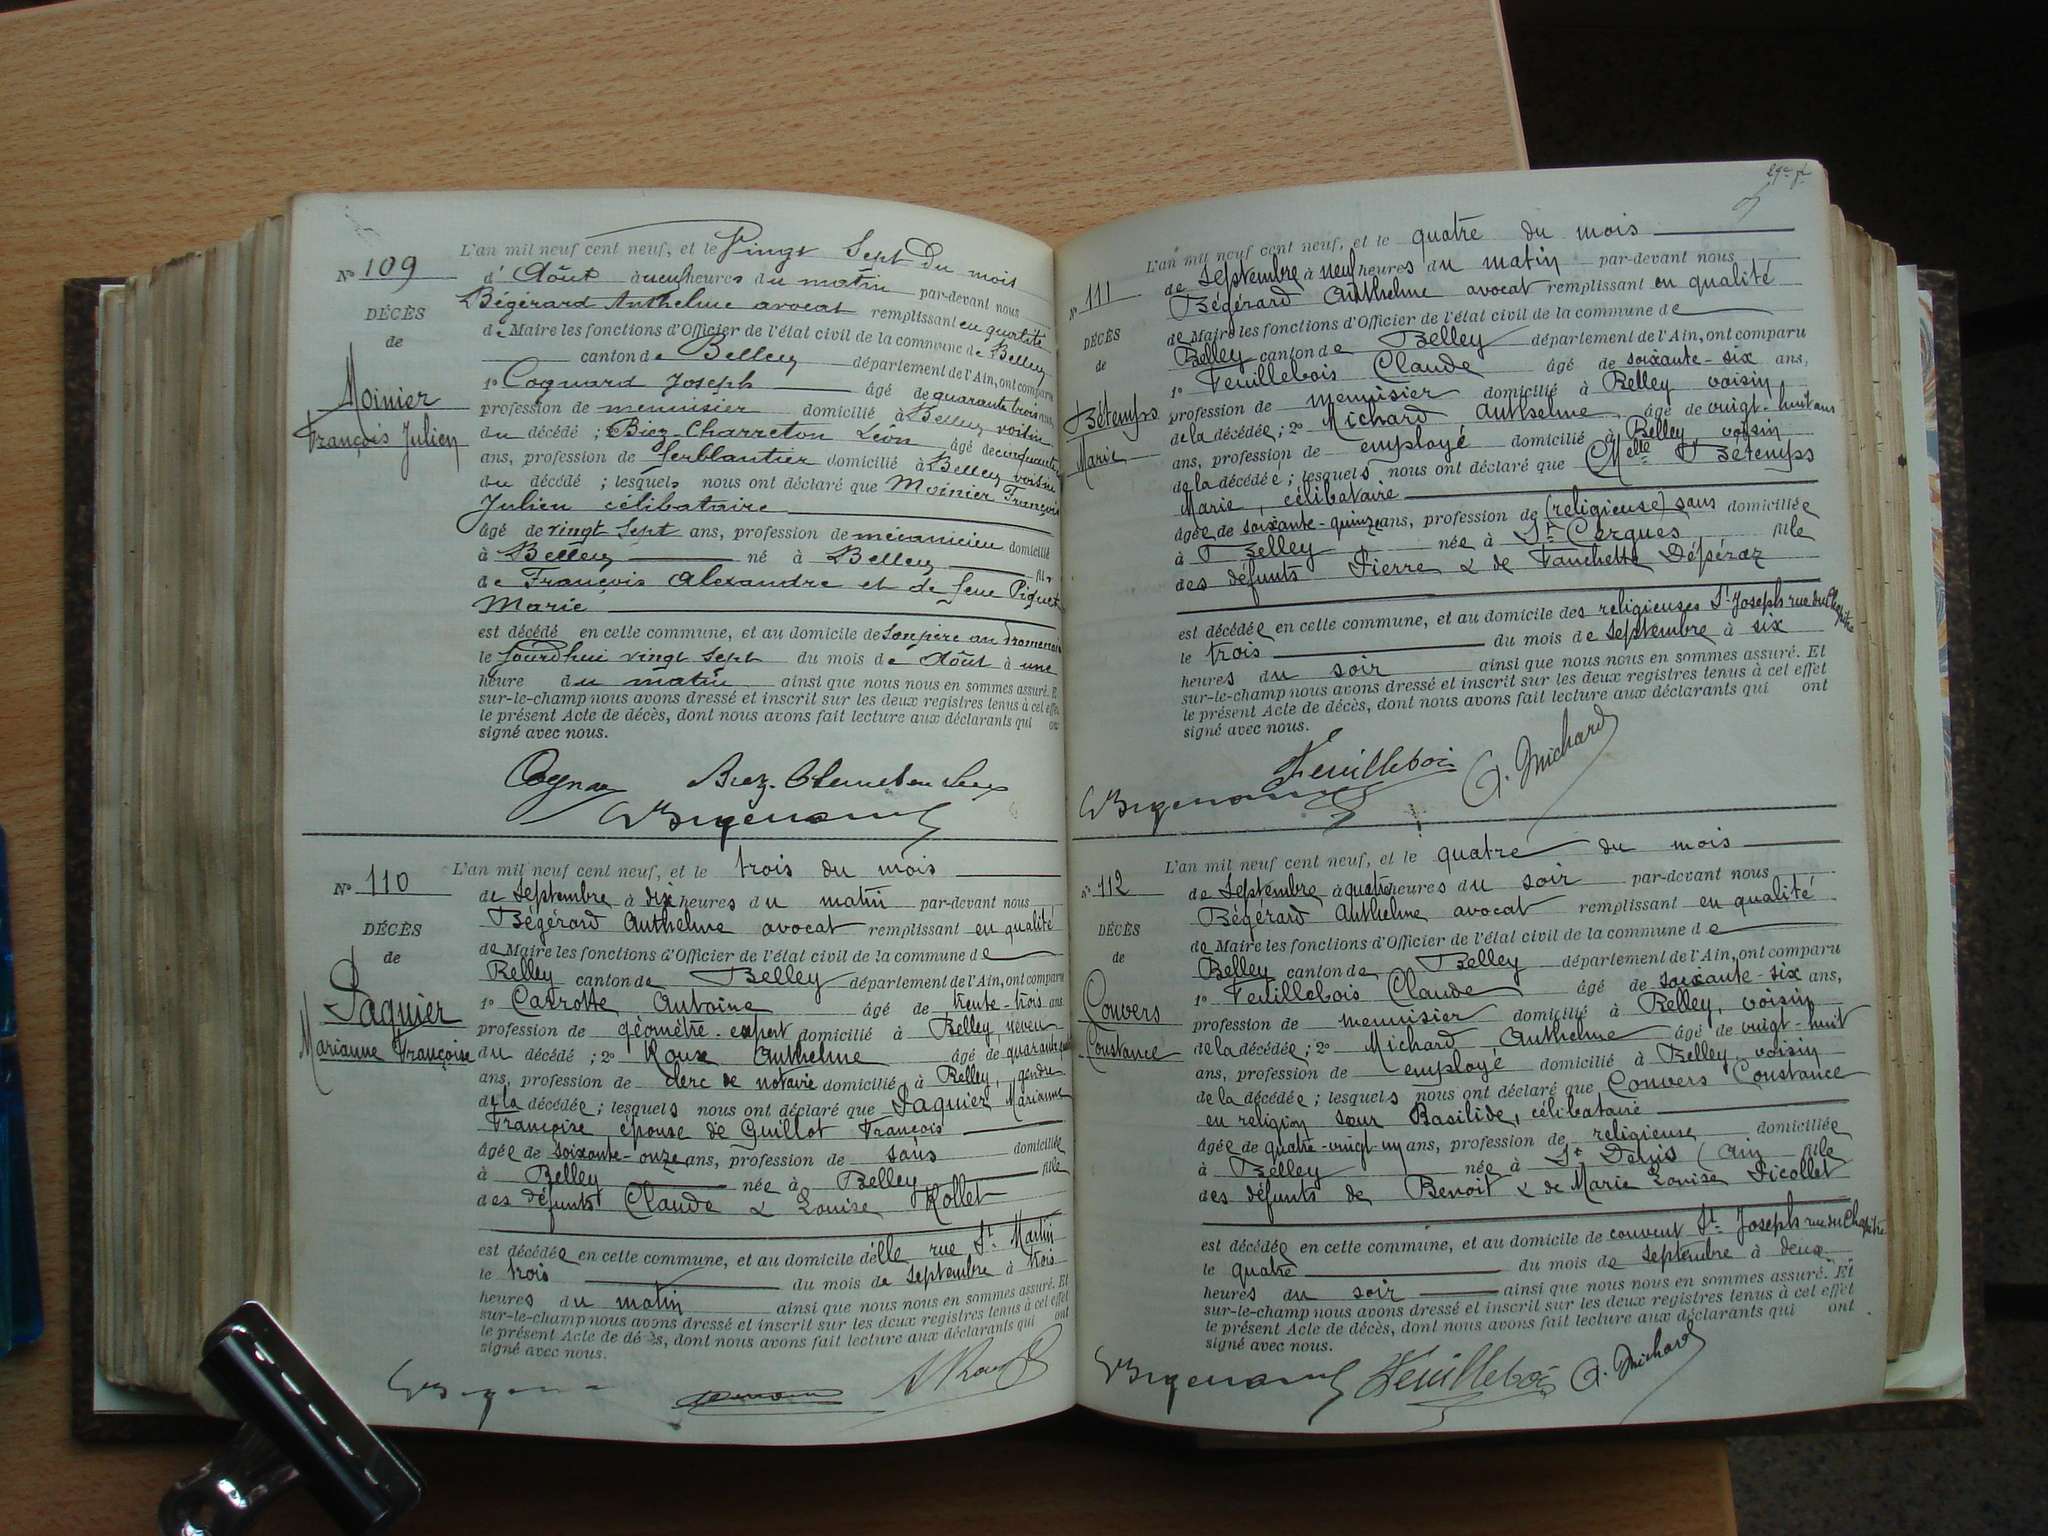 N° 109
DÉCÈS
de
Moinier
François Julien
L'an mil neuf cent neuf, et le Vingt Sept du mois
d' Août à neuf heures du matin par-devant nous
Bégérard Anthelme avocat remplissant en qualité
de Maire les fonctions d'Officier de l'état civil de la commune de Belley
canton de Belley département de l'Ain, ont comparu
1° Cognard Joseph âgé de quarante trois ans,
profession de menuisier domicilié à Belley voisin
du décédé ; Biez-Charreton Léon âgé de cinquante
ans, profession de ferblantier domicilié à Belley voisin
du décédé ; lesquels nous ont déclaré que Moinier François
Julien célibataire
âgé de vingt sept ans, profession de mécanicien domicilié
à Belley né à Belley fils
de François Alexandre et de feue Piquet
Marie
est décédé en cette commune, et au domicile de son père au Promenoir
le jourdhui vingt sept du mois de Août à une
heure du matin ainsi que nous nous en sommes assuré. Et
sur-le-champ nous avons dressé et inscrit sur les deux registres tenus à cet effet
le présent Acte de décès, dont nous avons fait lecture aux déclarants qui ont
signé avec nous.
N° 110
DÉCÈS
de
Saguier
Marianne Françoise
L'an mil neuf cent neuf, et le trois du mois
de Septembre à dix heures du matin par-devant nous
Bégérard Anthelme avocat remplissant en qualité
de Maire les fonctions d'Officier de l'état civil de la commune de
Belley canton de Belley département de l'Ain, ont comparu
1° Carrotte Antoine âgé de trente-trois ans
profession de géomètre-expert domicilié à Belley, neveu
du décédé ; 2° Roux Anthelme âgé de quarante
ans, profession de clerc de notaire domicilié à Belley, gendre
de la décédée ; lesquels nous ont déclaré que Saguier Marianne
Françoise, épouse de Guillot François
âgée de soixante-onze ans, profession de sans domiciliée
à Belley née à Belley fille
des défunts Claude & Louise Rollet
est décédée en cette commune, et au domicile d'elle rue St Martin
le trois du mois de septembre à trois
heures du matin ainsi que nous nous en sommes assuré. Et
sur-le-champ nous avons dressé et inscrit sur les deux registres tenus à cet effet
le présent Acte de décès, dont nous avons fait lecture aux déclarants qui ont
signé avec nous.
A Roux
N° 111
DÉCÈS
de
Bétemps
Marie
L'an mil neuf cent neuf, et le quatre du mois
de Septembre à neuf heures du matin par-devant nous
Bégérard Anthelme avocat remplissant en qualité
de Maire les fonctions d'Officier de l'état civil de la commune de
Belley canton de Belley département de l'Ain, ont comparu
1° Feuillebois Claude âgé de soixante-six ans,
profession de menuisier domicilié à Belley voisin
de la décédée ; 2° Michard Anthelme âgé de vingt-huit ans
ans, profession de employé domicilié à Belley, voisin
de la décédée ; lesquels nous ont déclaré que Melle Bétemps
Marie, célibataire
âgée de soixante-quinze ans, profession de (religieuse) sans domiciliée
à Belley née à St Cergues fille
des défunts Pierre & de Fanchette Dépéraz
est décédée en cette commune, et au domicile des religieuses St-Joseph rue du Chapitre
le trois du mois de septembre à six
heures du soir ainsi que nous nous en sommes assuré. Et
sur-le-champ nous avons dressé et inscrit sur les deux registres tenus à cet effet
le présent Acte de décès, dont nous avons fait lecture aux déclarants qui ont
signé avec nous.
Feuillebois A. Michard
N° 112
DÉCÈS
de
Convers
Constance
L'an mil neuf cent neuf, et le quatre du mois
de Septembre à quatre heures du soir par-devant nous
Bégérard Anthelme avocat remplissant en qualité
de Maire les fonctions d'Officier de l'état civil de la commune de
Belley canton de Belley département de l'Ain, ont comparu
1° Feuillebois Claude âgé de soixante-six ans,
profession de menuisier domicilié à Belley, voisin
de la décédée ; 2° Michard Anthelme âgé de vingt-huit
ans, profession de employé domicilié à Belley voisin
de la décédée ; lesquels nous ont déclaré que Convers Constance
en religion sœur Basilide, célibataire
âgée de quatre-vingt-un ans, profession de religieuse domiciliée
à Belley née à St Denis (Ain fille
des défunts de Benoit & de Marie Louise Picollet
est décédée en cette commune, et au domicile de couvent St-Joseph rue du Chapitre
le quatre du mois de septembre à deux
heures du soir ainsi que nous nous en sommes assuré. Et
sur-le-champ nous avons dressé et inscrit sur les deux registres tenus à cet effet
le présent Acte de décès, dont nous avons fait lecture aux déclarants qui ont
signé avec nous.
Feuillebois A. Michard